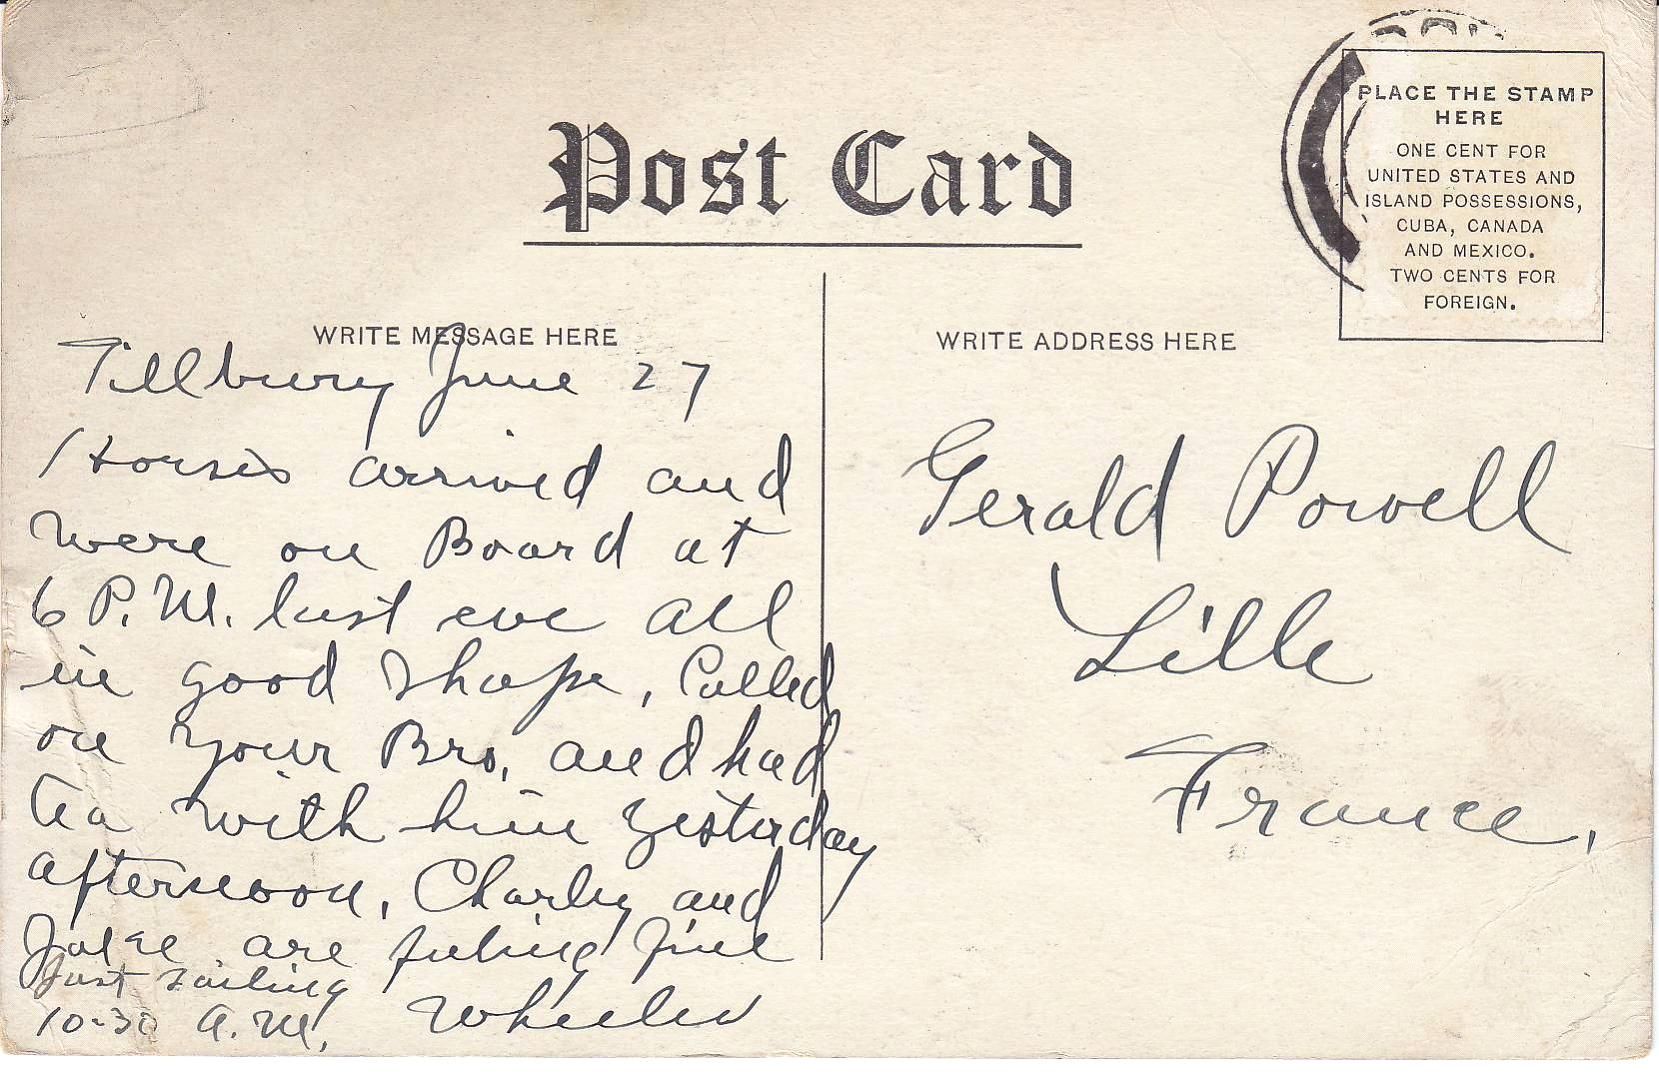 Post Card
PLACE THE STAMP
HERE
ONE CENT FOR
UNITED STATES AND
ISLAND POSSESSIONS,
CUBA, CANADA
AND MEXICO.
TWO CENTS FOR
FOREIGN.
WRITE MESSAGE HERE
Tillbury June 27
Horses arrived and
were on Board at
6 P.M. last eve all
in good shape, Called
on your Bro, and had
tea with him yesterday
afternoon, Charley and
are feeling fine
Just sailing
10-30 A.M. Wheeler
WRITE ADDRESS HERE
Gerald Powell
Lille
France,